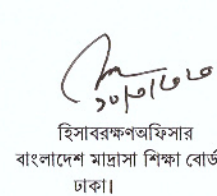 হিসাবরক্ষণঅফিসার
বাংলাদেশ মাদ্রাসা শিক্ষা বোর্ড
ঢাকা।